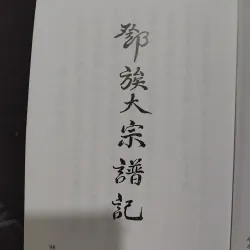 鄧族大宗譜記